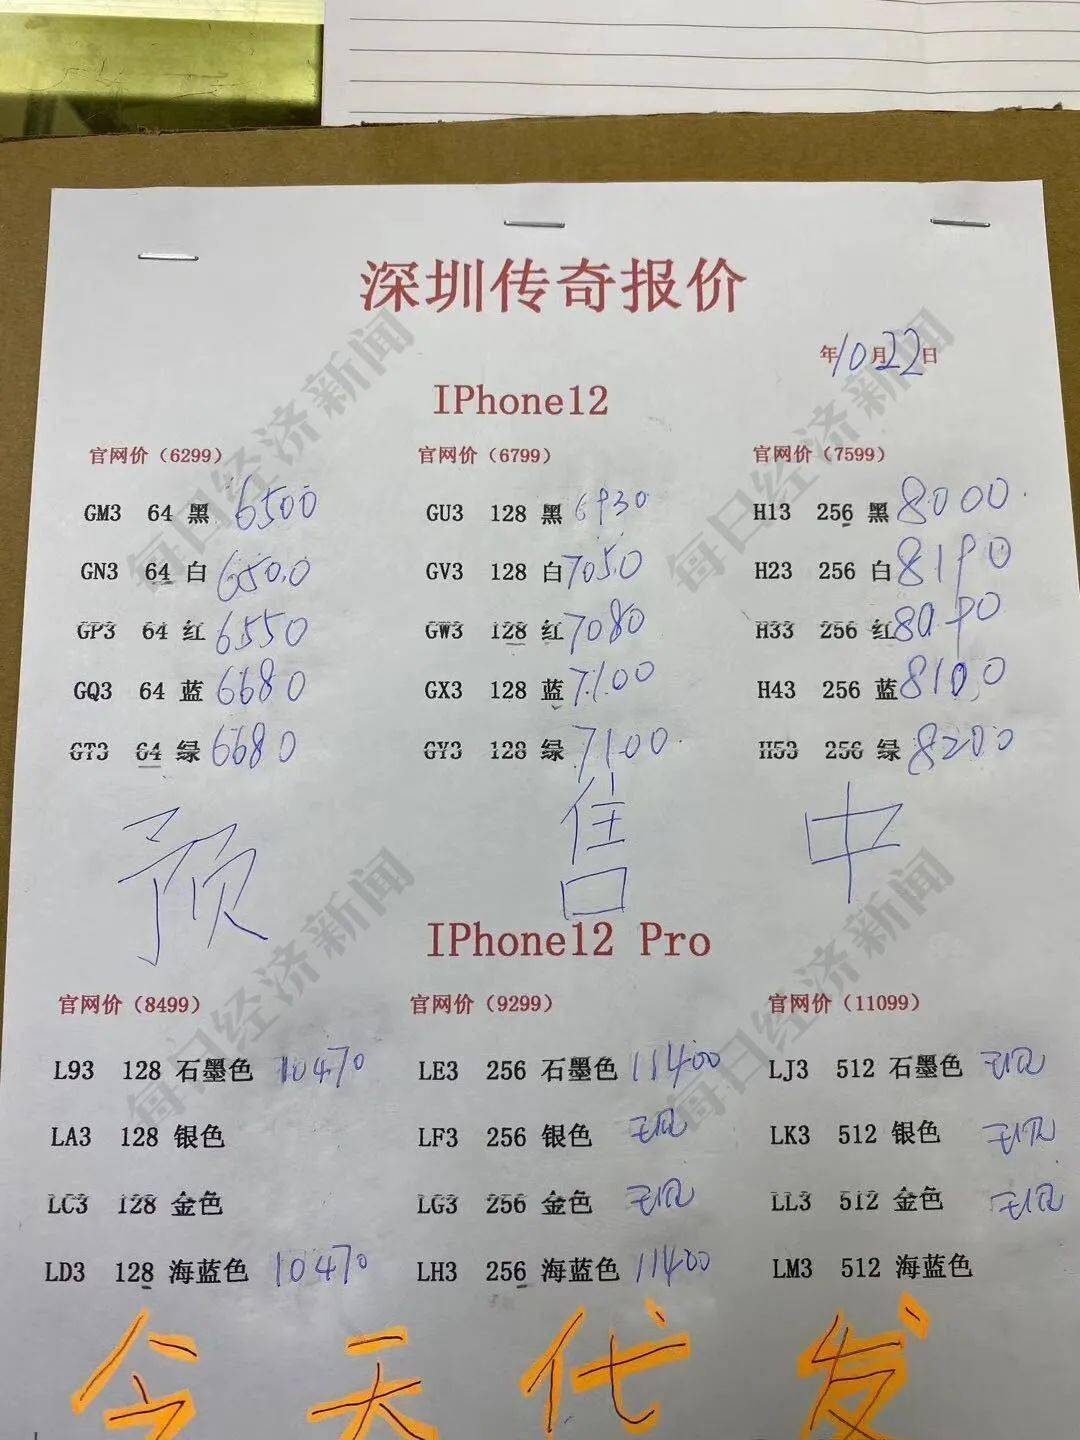 深圳传奇报价
年10月22日
IPhone12
官网价（6299） 官网价（6799） 官网价（7599）
GM3 64 黑 6500 GU3 128 黑 6930 H13 256 黑 8000
GN3 64 白 6500 GV3 128 白 7050 H23 256 白 8190
GP3 64 红 6550 GW3 128 红 7080 H33 256 红
GQ3 64 蓝 6680 GX3 128 蓝 7100 H43 256 蓝 8100
GT3 64 绿 6680 GY3 128 绿 7100 H53 256 绿 8200
预 售 中
IPhone12 Pro
官网价（8499） 官网价（9299） 官网价（11099）
L93 128 石墨色 10470 LE3 256 石墨色 11400 LJ3 512 石墨色
LA3 128 银色 LF3 256 银色 LK3 512 银色
LC3 128 金色 LG3 256 金色 LL3 512 金色
LD3 128 海蓝色 10470 LH3 256 海蓝色 11400 LM3 512 海蓝色
今天代发
每日经济新闻
每日经济新闻
每日经济新闻
每日经济新闻